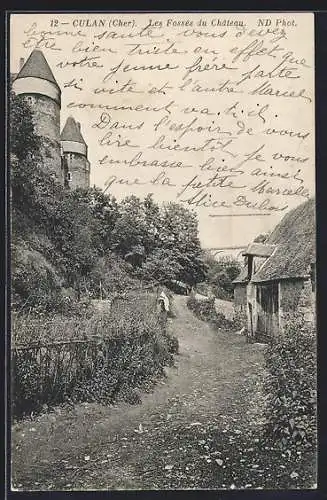 12 - CULAN (Cher). Les Fossés du Château. ND Phot.
bonne santé vous devez
être bien triste en effet que
votre jeune frère parte
si vite et l'autre Marcel
comment va.t.il.
Dans l'espoir de vous
lire bientôt je vous
embrasse bien ainsi
que la petite Marcelle
Alice Dubois